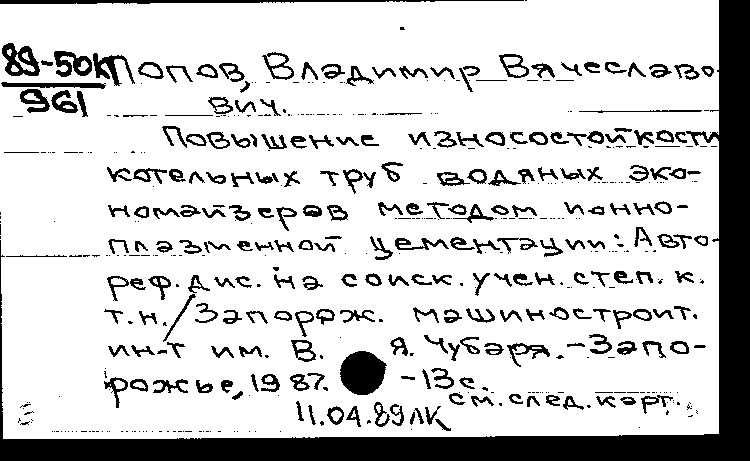 89-50К Попов, Владимир Вячеславо-
961 вич.
Повышение износостойкости
котельных труб водяных эко-
номайзеров методом ионно-
плазменной цементации: Авто-
реф. дис. на соиск. учен. степ. к.
т.н. / Запорож. машиностроит.
ин-т им. В. Я. Чубаря. - Запо-
рожье, 1987. - 13с.
см. след. карт.
11.04.89ЛК